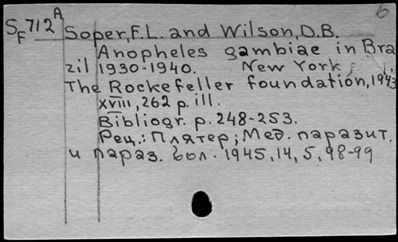 SF712A Soper, F.L. and Wilson, D.B.
Anopheles gambiae in Bra
zil 1930-1940. New York,
The Rockefeller foundation, 1943
XVIII, 262 p. ill.
Bibliogr. p. 248-253.
Рец.: Плятер; Мед. паразит.
и параз. бол. 1945, 14, 5, 98-99